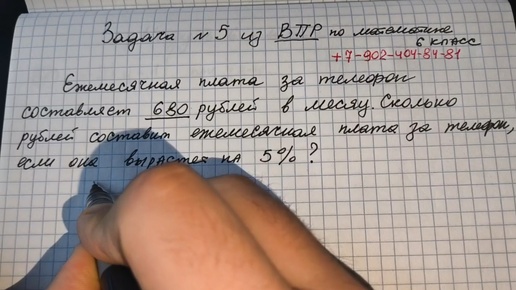 Задача №5 из ВПР по математике
6 КЛАСС
+7-902-404-84-81
Ежемесячная плата за телефон
составляет 680 рублей в месяц. Сколько
рублей составит ежемесячная плата за телефон,
если она вырастет на 5%?